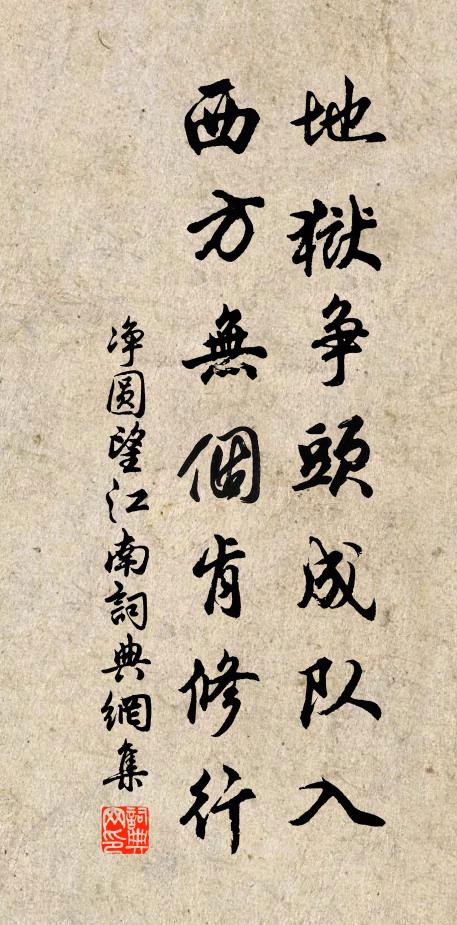 地獄争頭成队入
西方無個肯修行
净圆望江南詞典網集
詞典网印